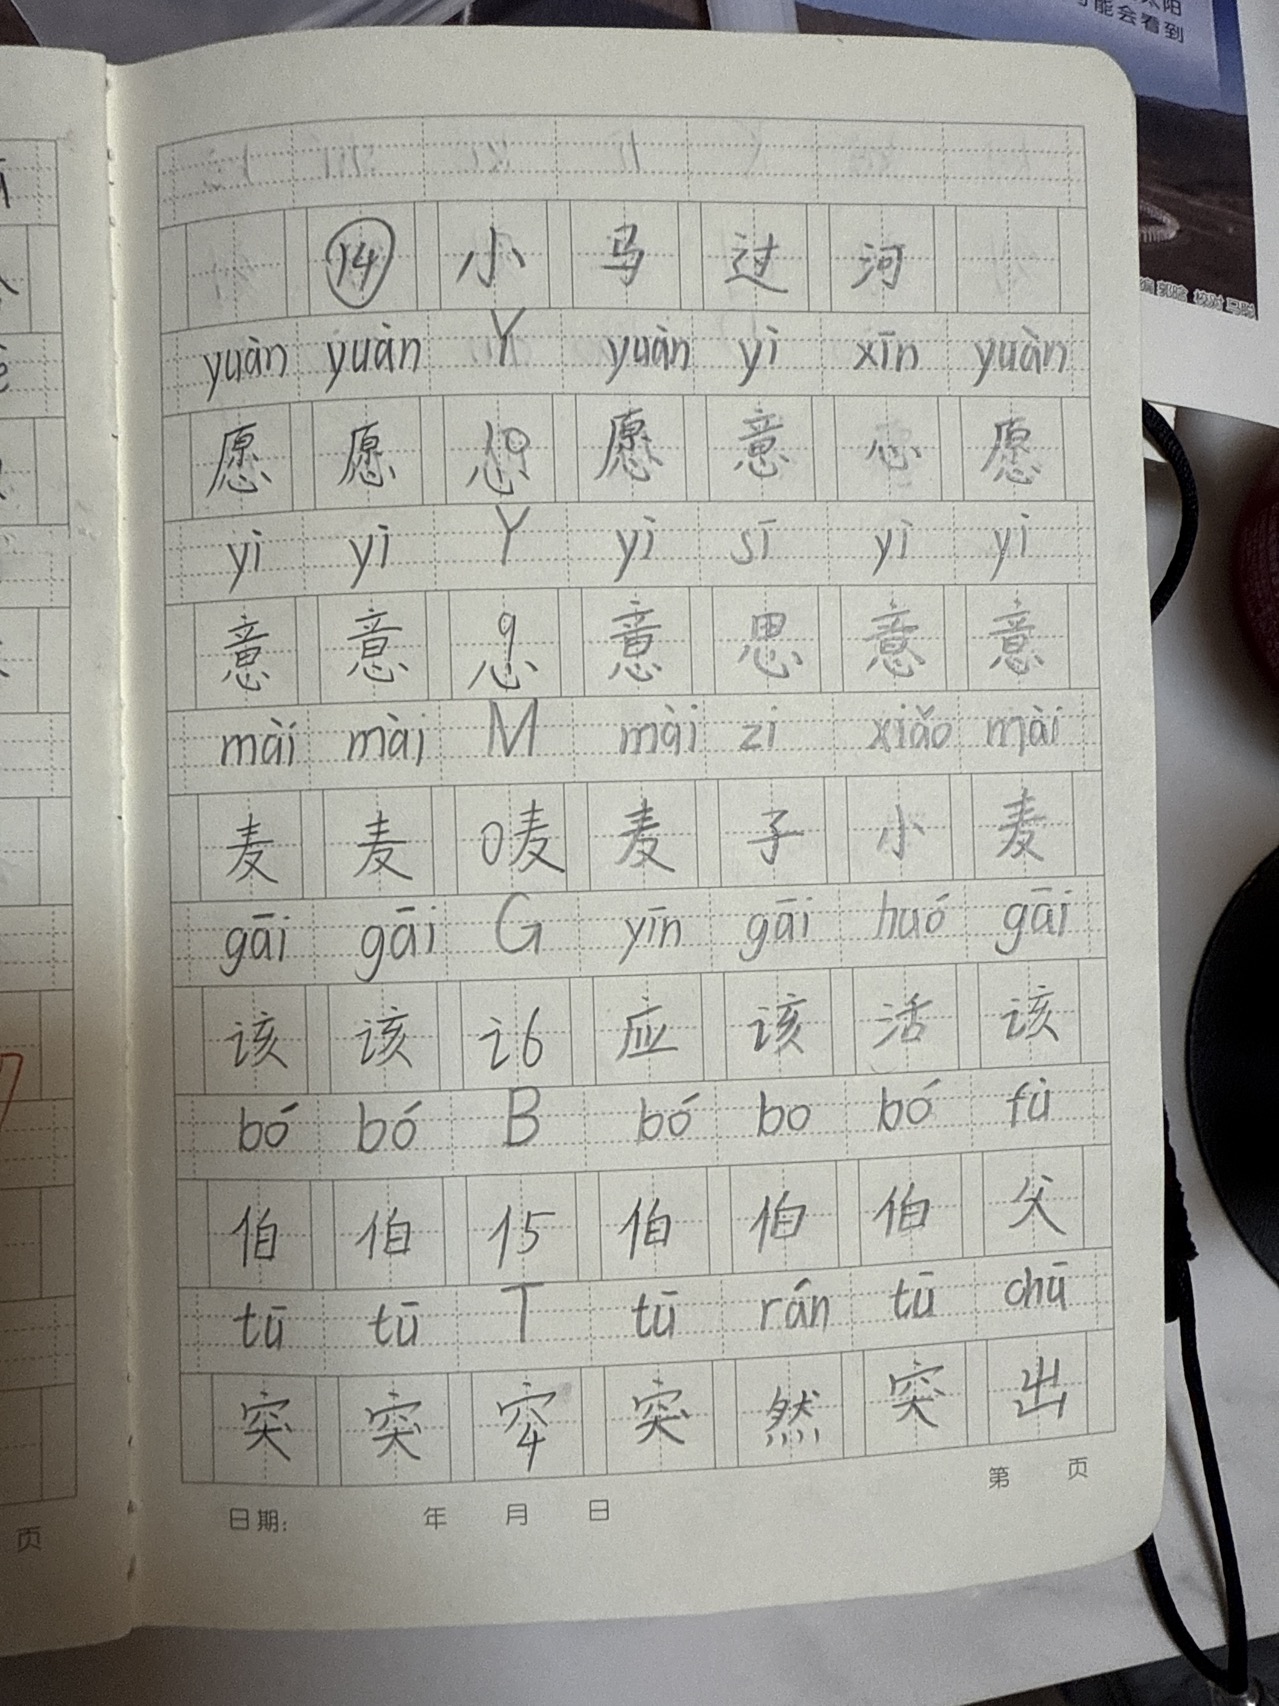 太阳
可能会看到
编 郭晗 校对 马聪
⑭ 小 马 过 河
yuàn yuàn Y yuàn yì xīn yuàn
愿 愿 心9 愿 意 心 愿
yì yì Y yì sī yì yì
意 意 9心 意 思 意 意
mài mài M mài zi xiǎo mài
麦 麦 0麦 麦 子 小 麦
gāi gāi G yīn gāi huó gāi
该 该 讠6 应 该 活 该
bó bó B bó bo bó fù
伯 伯 亻5 伯 伯 伯 父
tū tū T tū rán tū chū
突 突 穴4 突 然 突 出
日期: 年 月 日
第 页
页